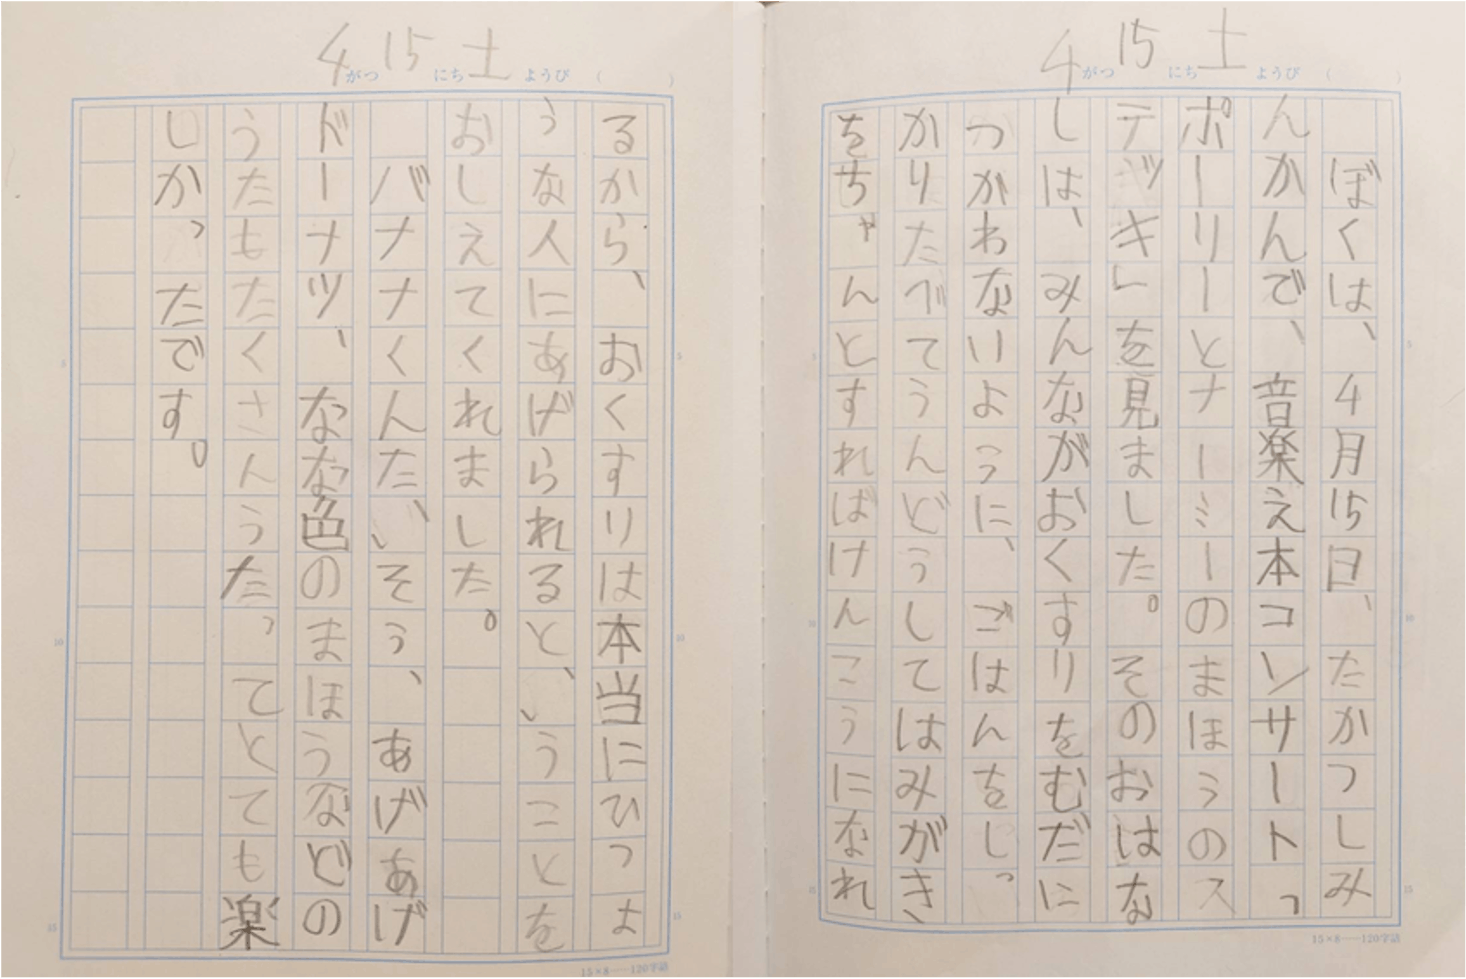 4がつ15にち土ようび（　）
ぼくは、4月15日、たかつしみ
んかんで、音楽え本コンサート「
ポーリーとナーミーのまほうのス
テッキ」を見ました。そのおはな
しは、みんながおくすりをむだに
つかわないように、ごはんをしっ
かりたべてうんどうしてはみがき
をちゃんとすればけんこうになれ
5
10
15
15×8—120字詰
4がつ15にち土ようび（　）
るから、おくすりは本当にひつよ
うな人にあげられると、いうことを
おしえてくれました。
バナナくんたいそう、あげあげ
ドーナツ、なな色のまほうなどの
うたもたくさんうたってとても楽
しかったです。
5
10
15
15×8—120字詰